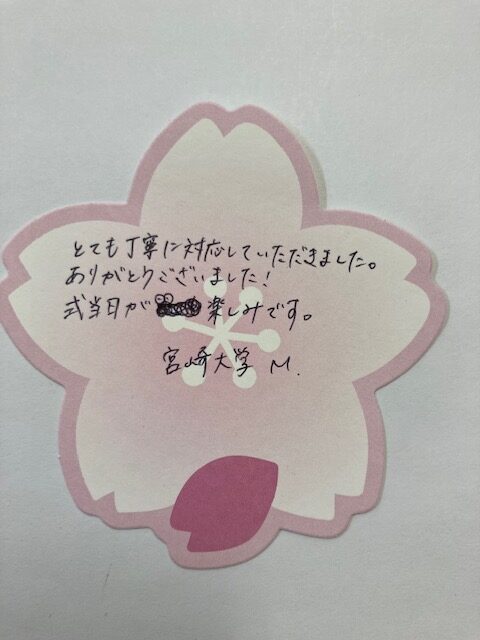 とても丁寧に対応していただきました。
ありがとうございました!
式当日が楽しみです。
宮崎大学 M.